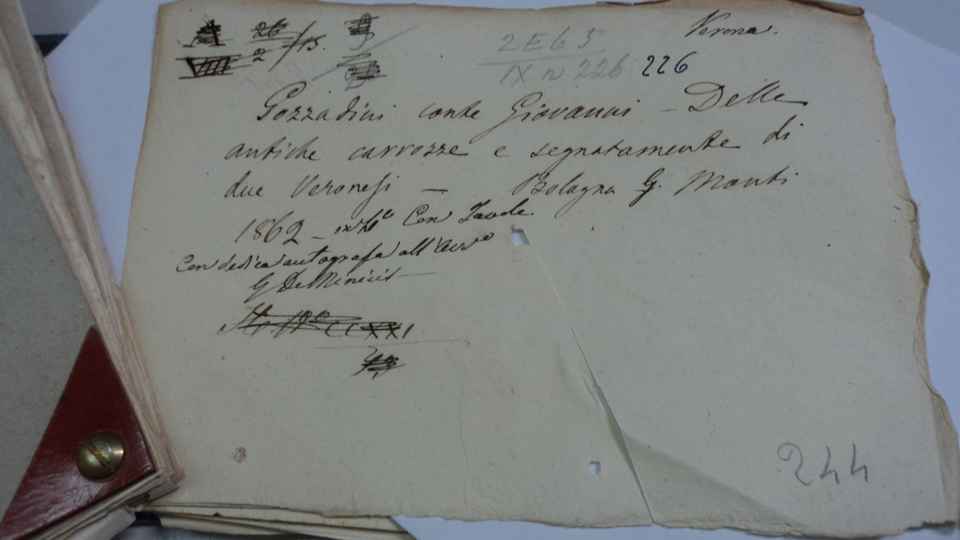 Verona.
26/2/13.
VIII
2 E 63
IX n 226 226
Gozzadini conte Giovanni - Delle
antiche carrozze e segnatamente di
due Veronesi — Bologna G. Monti
1862 - in 4° Con Tavole.
Con dedica autografa all'Avv°
G De Minicis
CCXXI
244